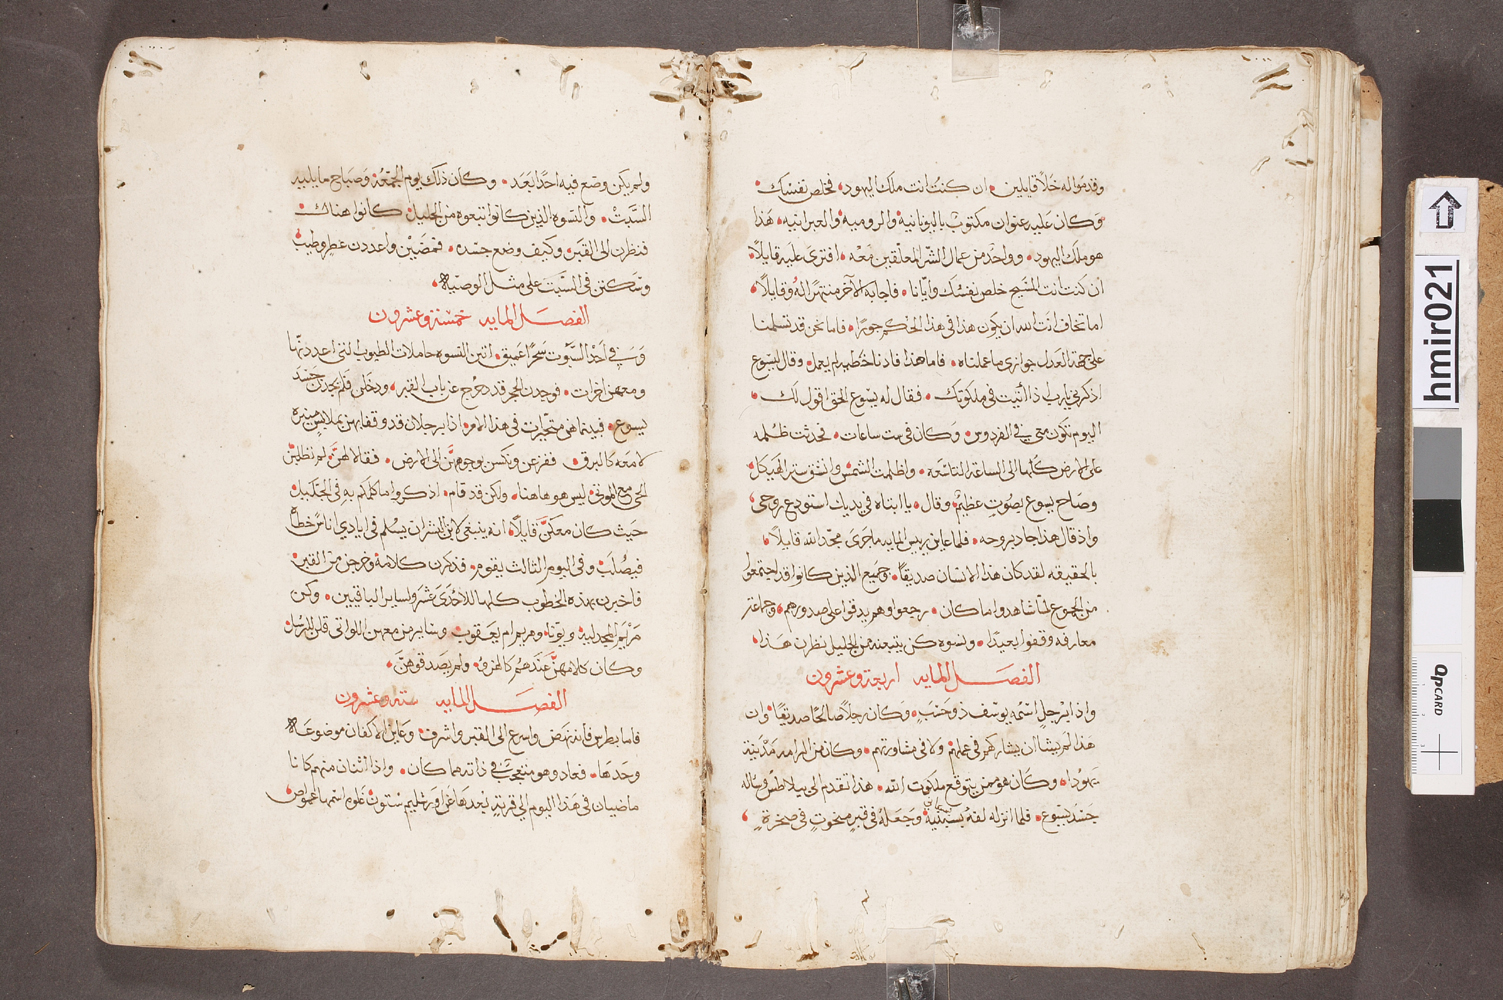 وقدموا له خلاً قايلين٠ ان كنت انت ملك اليهود٠ فخلص نفسك٠
وكان عليه عنوان مكتوب باليونانية والرومية والعبرانيه٠ هذا
هو ملك اليهود٠ وواحد من عمال الشر المعلقين معه٠ افترى عليه قايلاً٠
ان كنت انت المسيح خلص نفسك وايانا٠ فاجابه الآخر منتهراً له وقايلاً٠
اما تخاف انت الله ان يكون هذا في هذا الحكم جوراً٠ فاما نحن قد تسلمنا
على جهة العدل جوازي ما عملناه٠ فاما هذا فاذنا خطير لم يعمل٠ وقال ليسوع
اذكرني يارب اذا أتيت في ملكوتك٠ فقال له يسوع الحق اقول لك٠
اليوم تكون معي في الفردوس٠ وكان في ست ساعات٠ فحدثت ظلمه
على الارض كلها الى الساعة التاسعه٠ واظلمت الشمس وانشق ستر الهيكل
وصاح يسوع بصوت عظيم٠ وقال٠ يا ابتاه في يديك استودع روحي٠
واذ قال هذا جاد بروحه٠ فلما عاين رييس المايه ما جرى مجّد الله قايلاً٠
بالحقيقه لقد كان هذا الانسان صديقاً٠ وجميع الذين كانوا قد اجتمعوا
من الجموع لما شاهدوا ما كان٠ رجعوا وهم يدقوا على صدورهم٠ وجماعة
معارفه وقفوا بعيداً٠ ونسوه كن يتبعنه من الجليل نظرن هذا٠
الفصل المايه اربعة وعشرون
واذا برجل اسمه يوسف ذو حنب٠ وكان رجلاً صالحاً صديقاً٠ وان
هذا لم يشا ان يشاركهم في عملهم ولا في مشاورتهم٠ وكان من الرامه مدينة
يهودا٠ وكان هو ممن يتوقع ملكوت الله٠ هذا تقدم الى بيلاطس وساله
جسد يسوع٠ فلما انزله لفه بسبنية وجعله في قبر منحوت في صخرة٠
ولم يكن وضع فيه احداً بعد٠ وكان ذلك يوم الجمعة وصباح ما يليه
السبت٠ والنسوه الذين كانوا تبعوه من الجليل كانوا هناك٠
فنظرن الى القبر٠ وكيف وضع جسده٠ فمضين واعددن عطر وطيب
وسكنن في السبت على مثل الوصيه٠
الفصل المايه خمسة وعشرون
وفي احد السبوت سحراً عميق٠ اتين النسوه حاملات الطيوب التي اعددنها
ومعهن اخرات٠ فوجدن الحجر قد دحرج عن باب القبر٠ ودخلن فلم يجدن جسد
يسوع٠ فبينما هن متحيرات في هذا الامر٠ اذا برجلان قد وقفا بهن بملابس منيره
لامعه كالبرق٠ ففزعن ونكسن بوجوههن الى الارض٠ فقالا لهن٠ لم تطلبن
الحي مع الموتى٠ ليس هو هاهنا٠ ولكن قد قام٠ اذكروا ما كلمكم به في الجليل
حيث كان معكن قايلاً٠ انه ينبغي لابن البشر ان يسلم في ايادي اناس خطاه
فيصلب٠ وفي اليوم الثالث يقوم٠ فذكرن كلامه وخرجن من القبر٠
فاخبرن بهذه الخطوب كلها للاحدى عشر ولساير الباقيين٠ وكن
مريم المجدلية ويونا٠ ومريم ام يعقوب وساير من معهن اللواتي قلن للرسل
وكان كلامهن عندهم كالهزو٠ ولم يصدقوهن٠
الفصل المايه سته وعشرون
فاما بطرس فانه نهض واسرع الى القبر واشرف٠ وعاين الاكفان موضوعة
وحدها٠ فعاد وهو متعجب في ذاته مما كان٠ واذا اثنان منهم كانا
ماضيان في هذا اليوم الى قرية بعدها عن اورشليم ستون غلوه اسمها عمواص